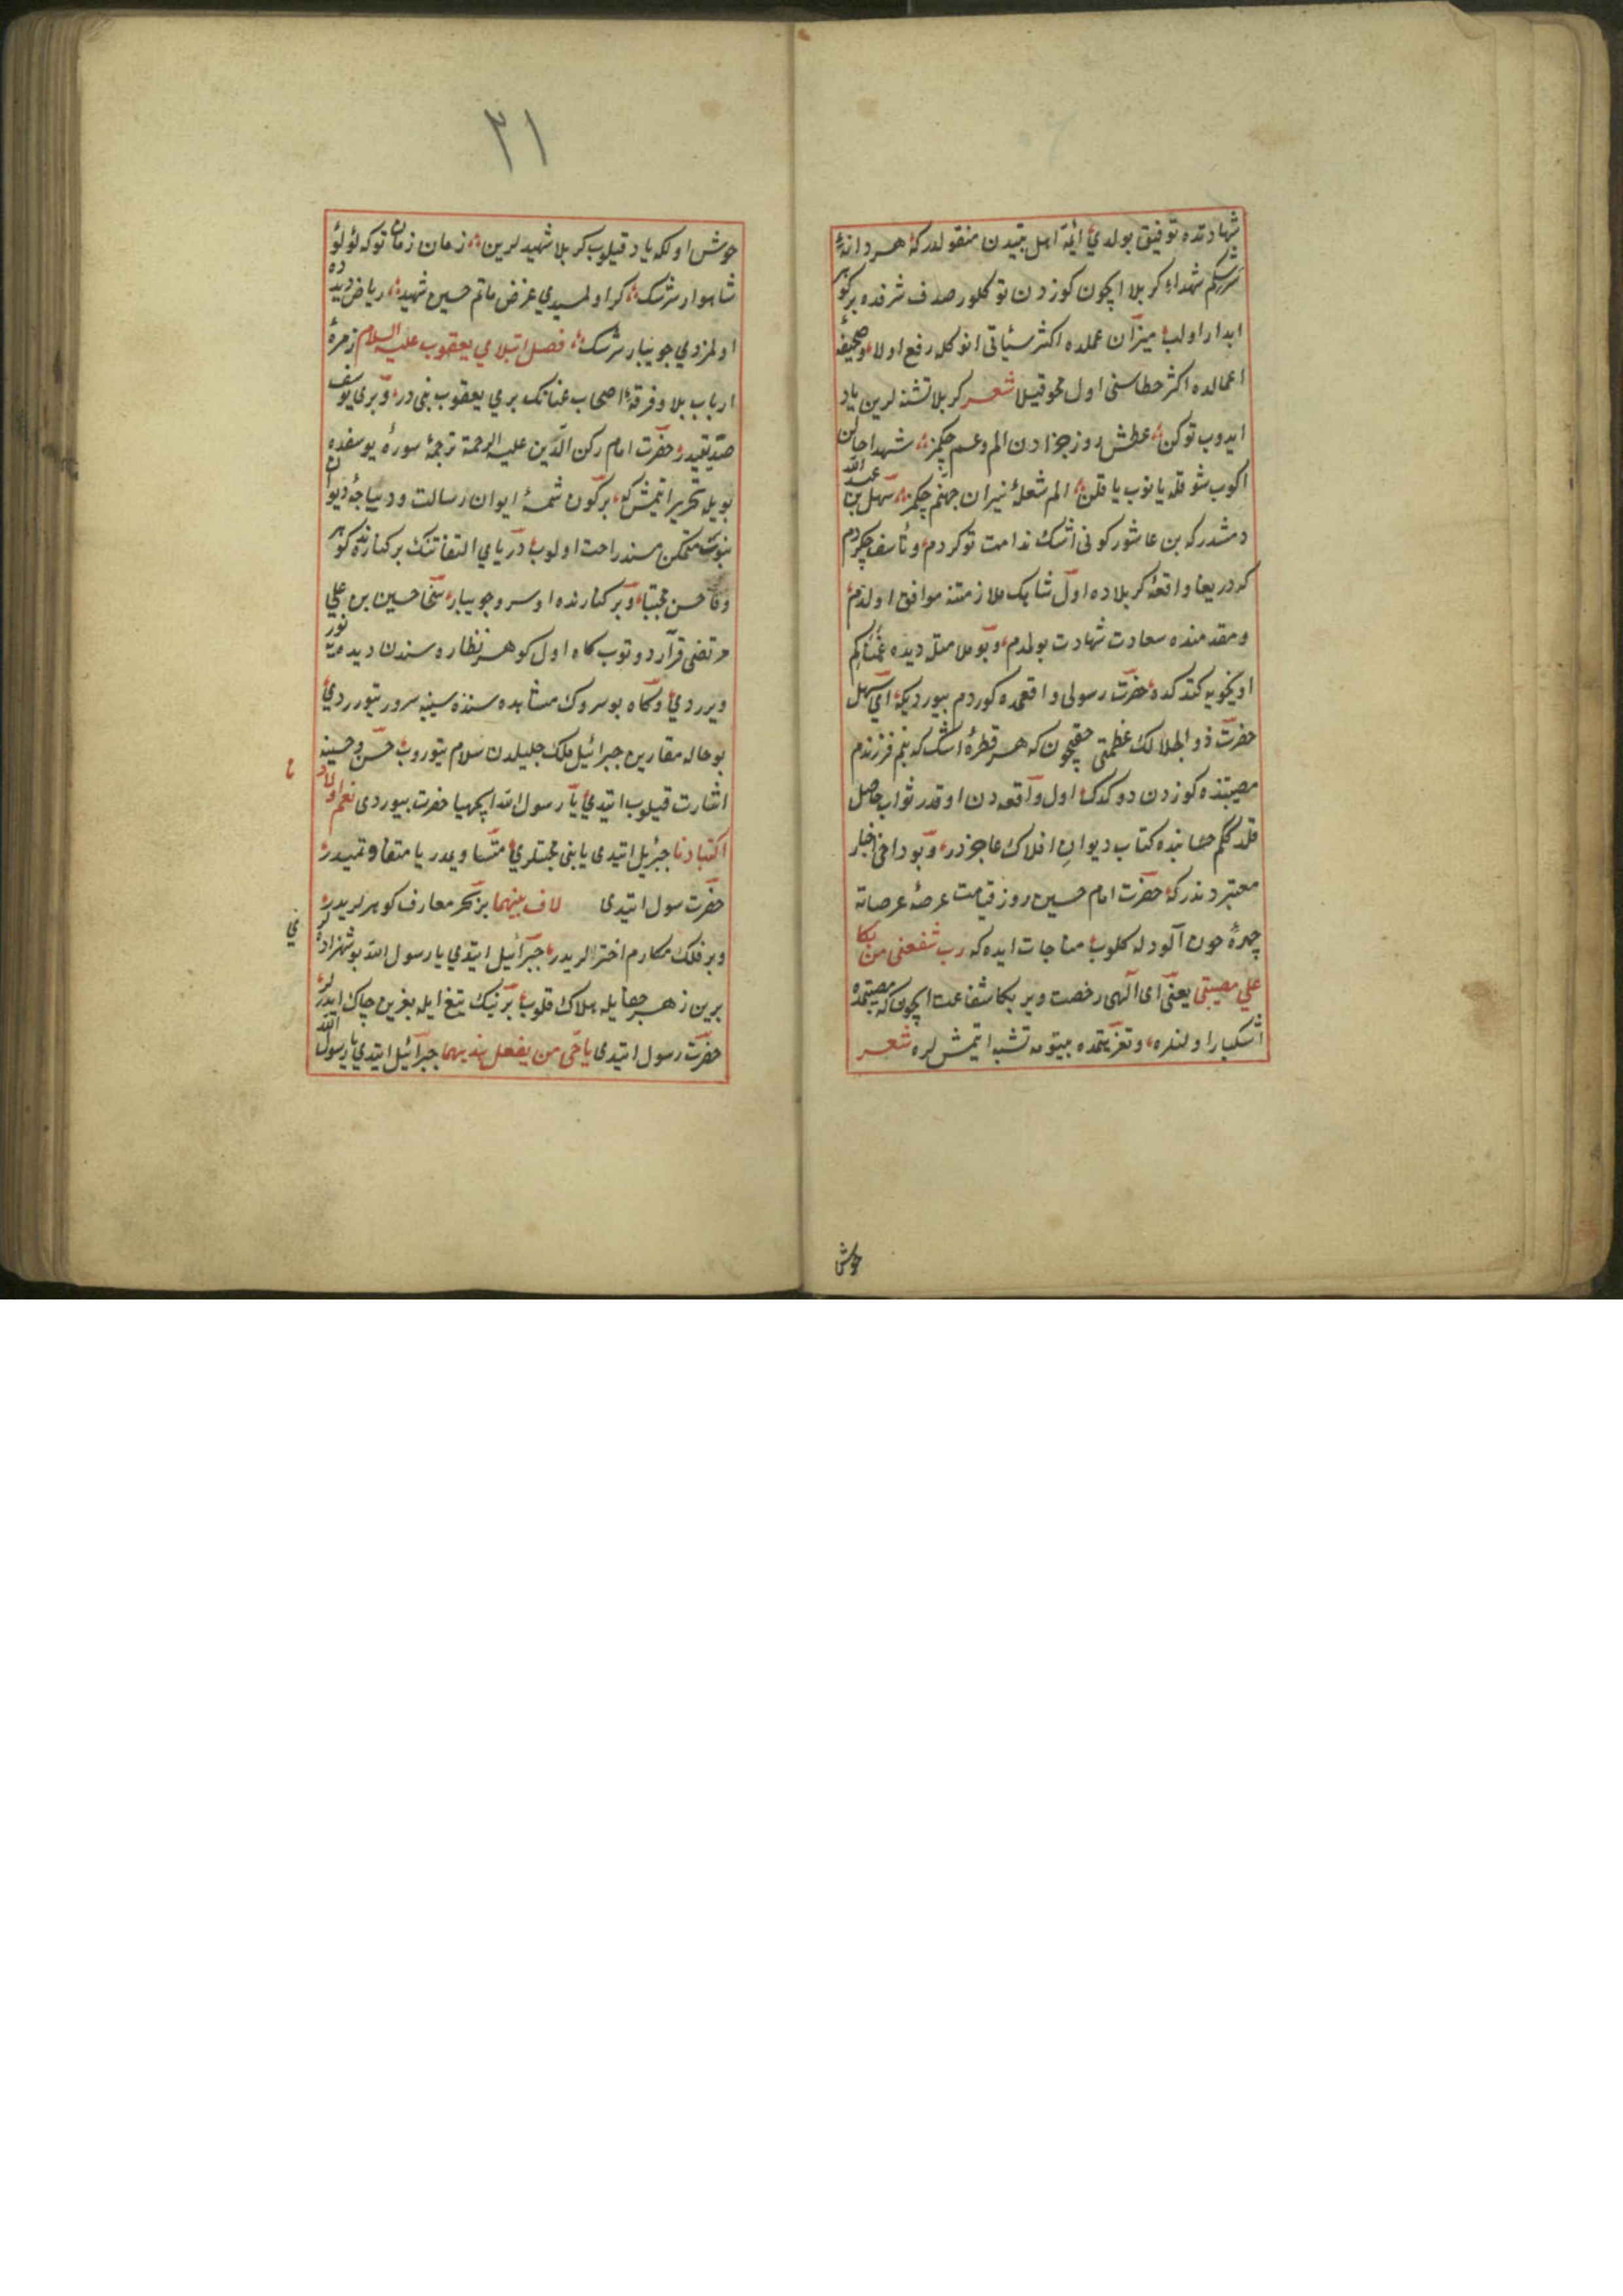 شهادتده توفیق بولدی ائمهٔ اهل بیتدن منقولدرکه هر دانهٔ
سرشکم شهداء کربلا ایچون کوزدن توکلور صدف شرفده بر کوهر
ابدار اولب میزان عملده اکثر سیّاتی انوکله رفع اولا وصحیفهٔ
اعمالده اکثر خطاسنی اول محو قیلا شعر کربلا تشنه لرین یاد
ایدوب توکن عطش روز جزادن الم وغم چکمز شهدا حالن
اکوب شوقله یانوب یاقلن الم شعلهٔ نیران جهنم چکمز سهل بن عبد الله
دمشدرکه بن عاشور کونی اشک ندامت توکردم وتأسف چکردم
که دریغا واقعهٔ کربلاده اول شاهک ملازمتنه موافق اولمدم
ومقدمنده سعادت شهادت بولمدم وبو ملامتله دیده غمناکم
اویخویه کتدکده حضرت رسولی واقعه‌ده کوردم بیوردیکه ای سهل
حضرت ذو الجلالک عظمتی حقیچون که هر قطرهٔ اشک که بنم فرزندم
مصیبتنده کوزدن دوکدک اول واقعه‌دن اوقدر ثواب حاصل
قلدک کم حسابنده کتاب دیوان افلاک عاجزدر وبو داخی اخبار
معتبره‌ندرکه حضرت امام حسین روز قیامت عرصهٔ عرصاته
چهرهٔ خون آلودله کلوب مناجات ایده‌که رب شفعنی من بکا
علی مصیبتی یعنی ای الهی رخصت ویر بکا شفاعت ایچون که مصیبتمده
اشکبار اولنلره وتعزیتمده بیتومه تشبه ایتمش لره شعر
خوش
٢١
خوش اولکه یاد قیلوب کربلا شهیدلرین زمان زمان توکه لؤلؤ
شاهوار سرشک کر اولمسیدی غرض ماتم حسین شهید ریاض دیده‌ده
اولمزدی جویبار سرشک فصل ابتلای یعقوب علیه السلام زمرهٔ
ارباب بلا وفرقهٔ اصحاب عنانک بری یعقوب نبی در وبری یوسف
صدیقیدر حضرت امام رکن الدین علیه الرحمة ترجمهٔ سورهٔ یوسفده
بویله تحریر ایتمش که برکون شمسهٔ ایوان رسالت ودیباجهٔ دیوان
نبوت متمکن مسند راحت اولوب دریای التفاتنک بر کنارنده کوهر
وفا حسن مجتبا وبر کنارنده او سرو جویبار سخا حسین بن علی
مرتضی قرار دوتوب کاه اول کوهر نظاره سندن دیده‌یه نور
ویرردی وکاه بو سروک مشاهده سنده سینیه سرور یتورردی
بو حاله مقارن جبرائیل ملک جلیلدن سلام یتوروب حسن وحسینه
اشارت قیلوب ایتدی یا رسول الله اتحبهما حضرت بیوردی نعم اولاد
اکتبادنا جبرئیل ایتدی یا نبی محبتلری متساویمدر یا متفاوتمیدر
حضرت رسول ایتدی لاف بینهما بر بحر معارف کوهرلریدر
وبر فلک مکارم اخترلریدر جبرائیل ایتدی یا رسول الله بو شهزاده‌لر
برین زهر جفایله هلاک قلوب برنیک تیغ ایله بغرین چاک ایدرلر
حضرت رسول ایتدی یا اخی من یفعل بذیهما جبرائیل ایتدی یا رسول الله